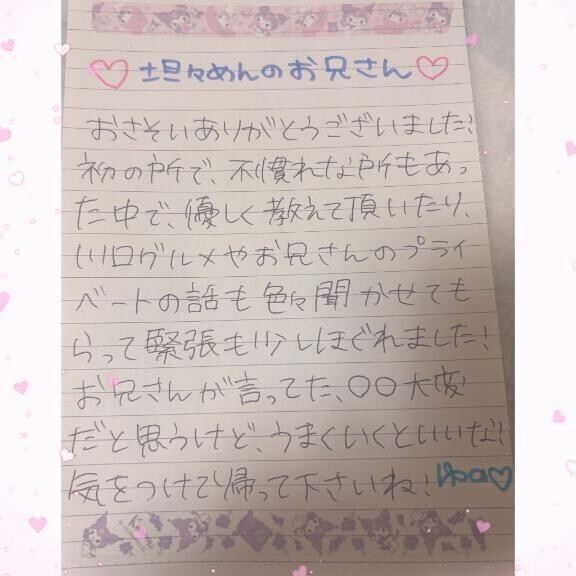 坦々めんのお兄さん
おさそいありがとうございました!
初の所で、不慣れな所もあっ
た中で、優しく教えて頂いたり、
川口グルメやお兄さんのプライ
ベートの話も色々聞かせても
らって緊張も少しほぐれました!
お兄さんが言ってた、○○大変
だと思うけど、うまくいくといいな!
気をつけて帰って下さいね!